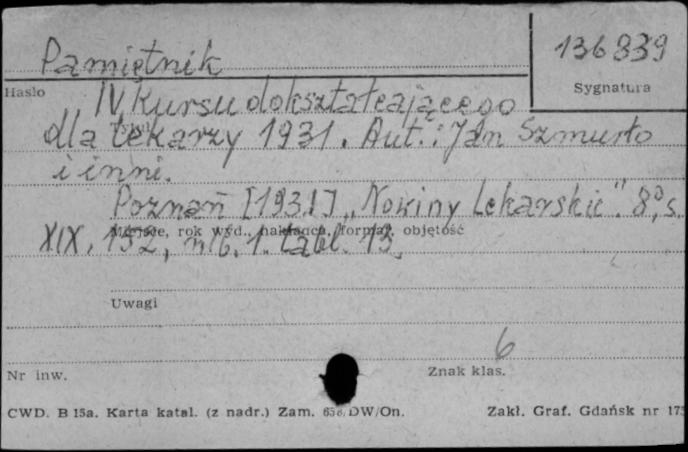 136839
Pamiętnik
Hasło
Sygnatura
IV kursu dokształcającego
dla lekarzy 1931. Aut.: Jan Szmurło
i inni.
Poznań [1931] „Nowiny Lekarskie". 8°, s.
XIX, 152, nlb. 1. tabl. 13.
Miejsce, rok wyd., nakładca, format, objętość
Uwagi
6
Nr inw.
Znak klas.
CWD. B 15a. Karta katal. (z nadr.) Zam. 658/DW/On.
Zakł. Graf. Gdańsk nr 175